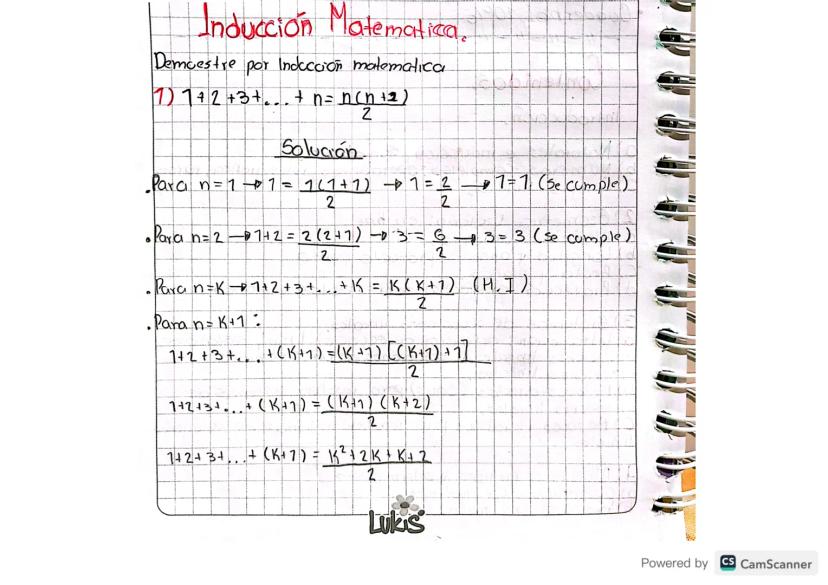 Inducción Matematica.
Demuestre por Inducción matematica
1) 1+2+3+...+ n = n(n+1)/2
Solución
. Para n=1 → 1 = 1(1+1)/2 → 1 = 2/2 → 1=1. (Se cumple)
. Para n=2 → 1+2 = 2(2+1)/2 → 3 = 6/2 → 3 = 3 (se cumple)
. Para n=K → 1+2+3+...+K = K(K+1)/2 (H.I)
. Para n=K+1:
1+2+3+...+(K+1) = (K+1)[(K+1)+1]/2
1+2+3+...+(K+1) = (K+1)(K+2)/2
1+2+3+...+(K+1) = K²+2K+K+2/2
Lukis
Powered by CS CamScanner